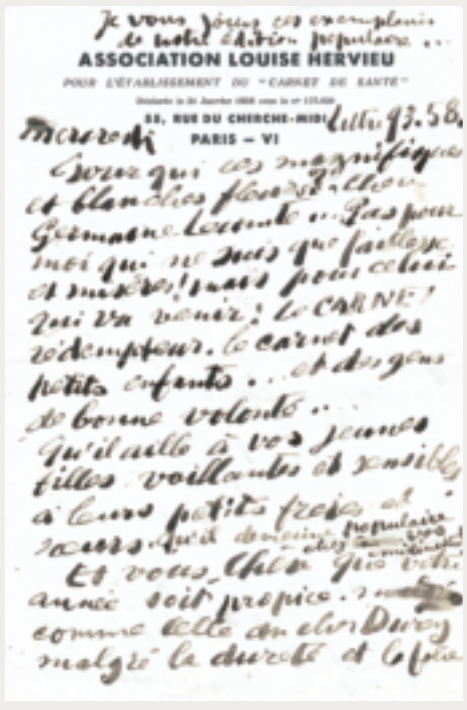 Je vous joins ces exemplaires
de notre édition populaire ...
ASSOCIATION LOUISE HERVIEU
POUR L'ÉTABLISSEMENT DU "CARNET DE SANTÉ"
55, RUE DU CHERCHE-MIDI Littré 93.58.
mercredi PARIS — VI
Pour qui ces magnifiques
et blanches fleurs
Germaine Lecomte ... Pas pour
moi qui ne suis que faiblesse
et misères! mais pour celui
qui va venir! Le CARNET
rédempteur. le carnet des
petits enfants ... et des gens
de bonne volonté ...
Qu'il aille à vos jeunes
filles vaillantes et sensibles
à leurs petits frères et
sœurs. Qu'il devienne populaire
chez vos
Et vous, Chère que votre
année soit propice.
comme celle du cher
malgré la dureté et